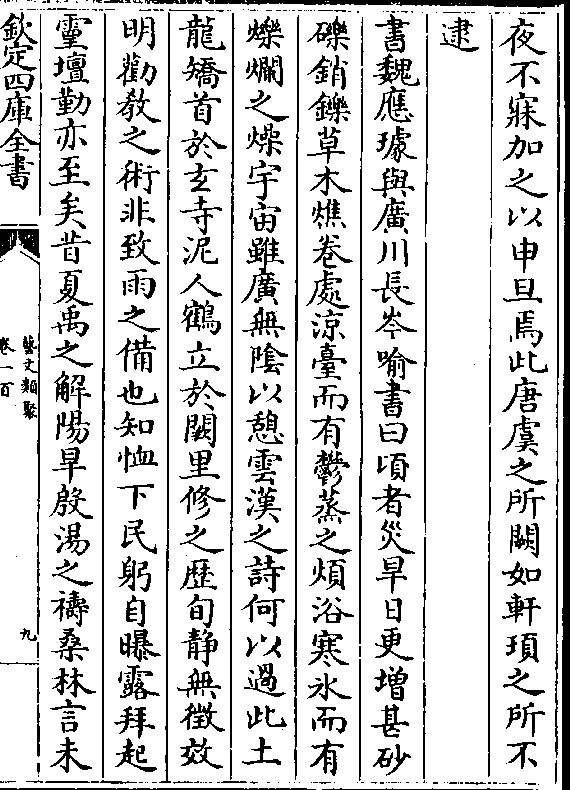 夜不寐加之以申旦焉此唐虞之所闕如軒頊之所不
逮
書魏應璩與廣川長岑喻書曰頃者炎旱日更增甚砂
礫銷鑠草木燋卷處涼臺而有鬱蒸之煩浴寒氷而有
爍爛之燥宇宙雖廣無陰以憩雲漢之詩何以過此土
龍矯首於玄寺泥人鶴立於闕里修之歷旬静無徴效
明勸教之術非致雨之備也知恤下民躬自曝露拜起
靈壇勤亦至矣昔夏禹之解陽旱殷湯之禱桑林言未
欽定四庫全書
藝文類聚
卷一百
九